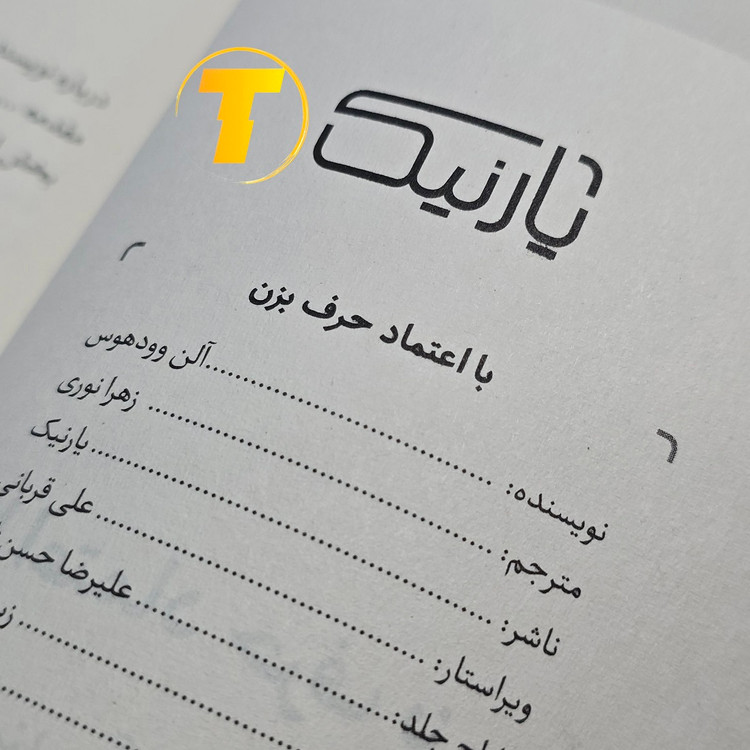 T
یارنیک
با اعتماد حرف بزن
نویسنده: آلن وودهوس
مترجم: زهرا نوری
ناشر: یارنیک
ویراستار: علی قربانی
جلد: علیرضا
درباره
مقدمه